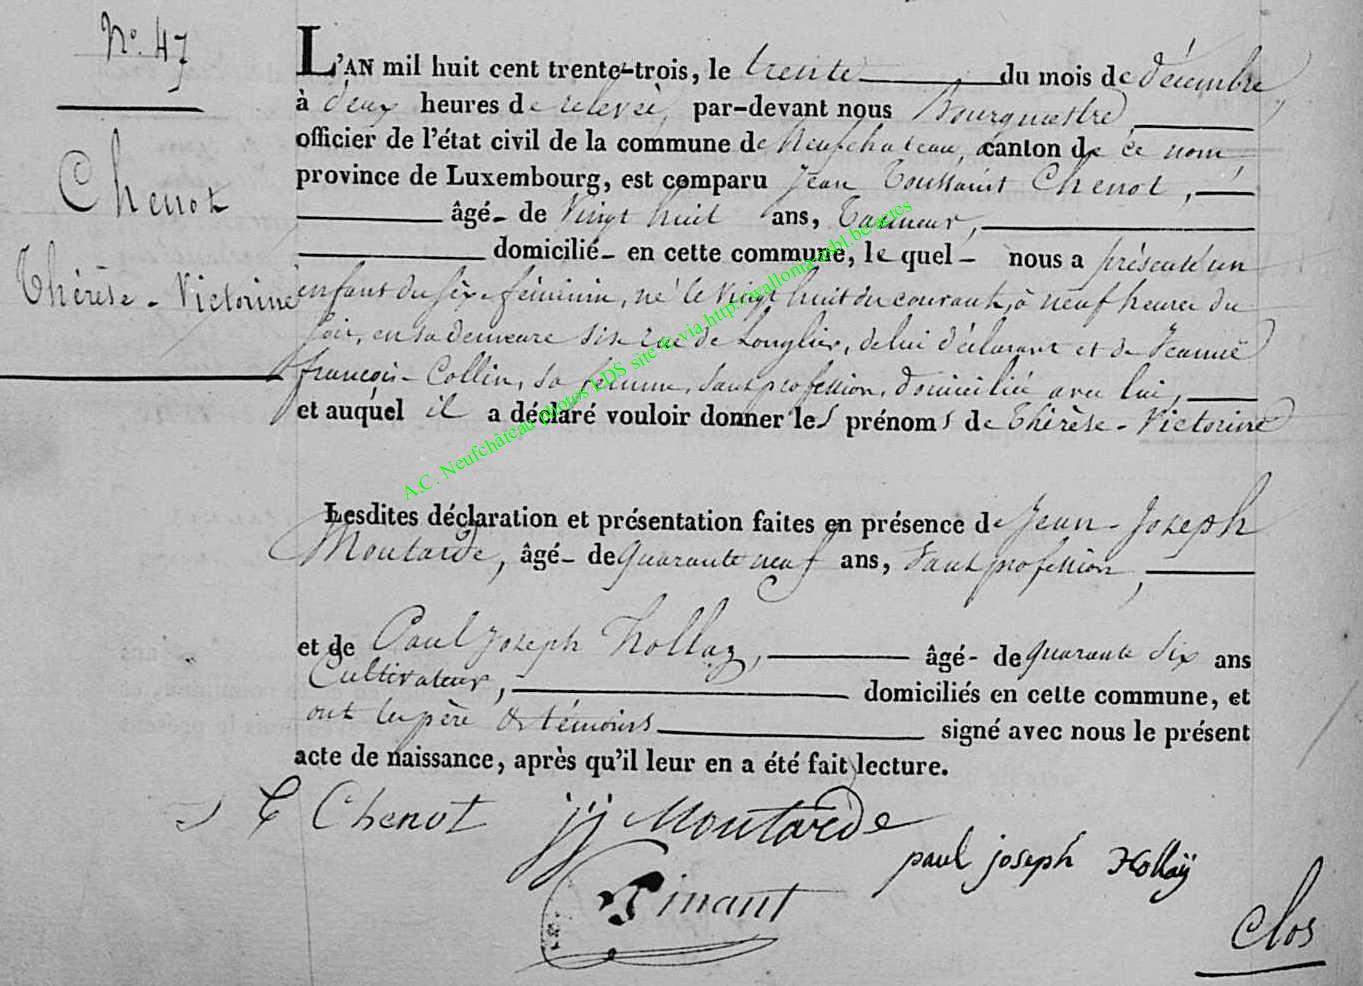 N°. 47
Chenot
Thérèse - Victorine
L'AN mil huit cent trente-trois, le trente du mois de décembre,
à deux heures de relevée, par-devant nous Bourgmestre,
officier de l'état civil de la commune de Neufchateau, canton de ce nom
province de Luxembourg, est comparu Jean Toussaint Chenot,
âgé- de vingt huit ans, Tanneur,
domicilié- en cette commune, le quel- nous a présenté un
enfant du sexe féminin, né le vingt huit du courant, à neuf heures du
soir, en sa demeure sise rue de Longlier, de lui déclarant et de Jeanne
françois- Collin, sa femme, sans profession, domiciliée avec lui,
et auquel il a déclaré vouloir donner les prénoms de Thérèse - Victorine
Lesdites déclaration et présentation faites en présence de Jean - Joseph
Moutarde, âgé- de quarante neuf ans, sans profession,
et de Paul Joseph Hollay, âgé- de quarante six ans
Cultivateur, domiciliés en cette commune, et
ont les père & témoins signé avec nous le présent
acte de naissance, après qu'il leur en a été fait lecture.
J T Chenot
jj Moutarde
paul joseph Hollaÿ
Pinant
Clos
A.C. Neufchâteau photos LDS site & via http://wallonia-asbl.be/actes